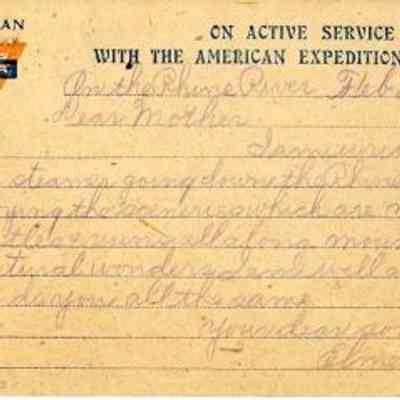 AN
ON ACTIVE SERVICE
WITH THE AMERICAN EXPEDITION
On the Rhine River Feb
Dear Mother
I am
steamer going down the Rhine
ying the sceneries which are
all along
wonders I am well a
do you all the same
Your dear so
Elme